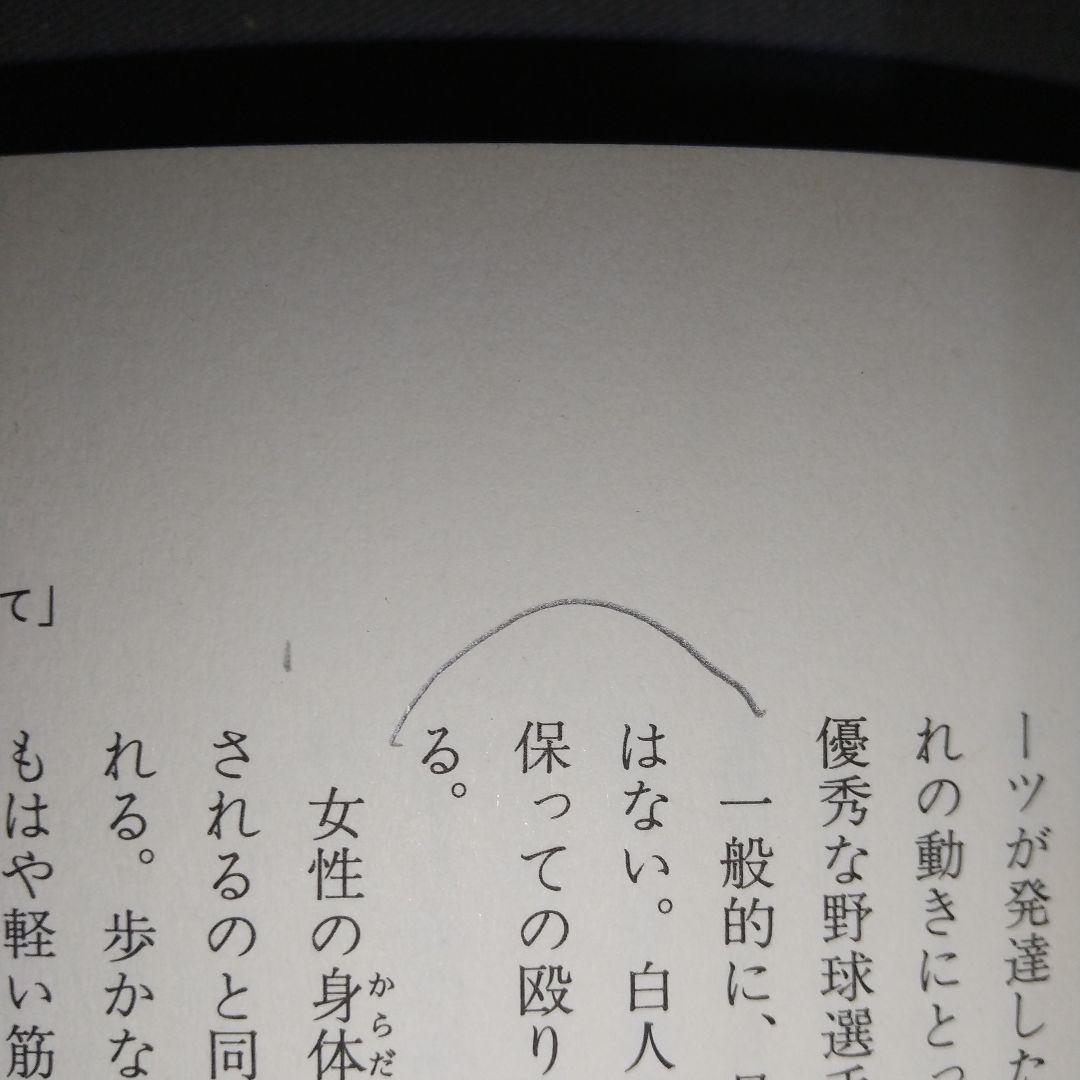 ーツが発達した
れの動きにとっ
優秀な野球選手
一般的に、
はない。白人
保っての殴り
る。
女性の身体
からだ
されるのと同
れる。歩かな
もはや軽い筋
て」